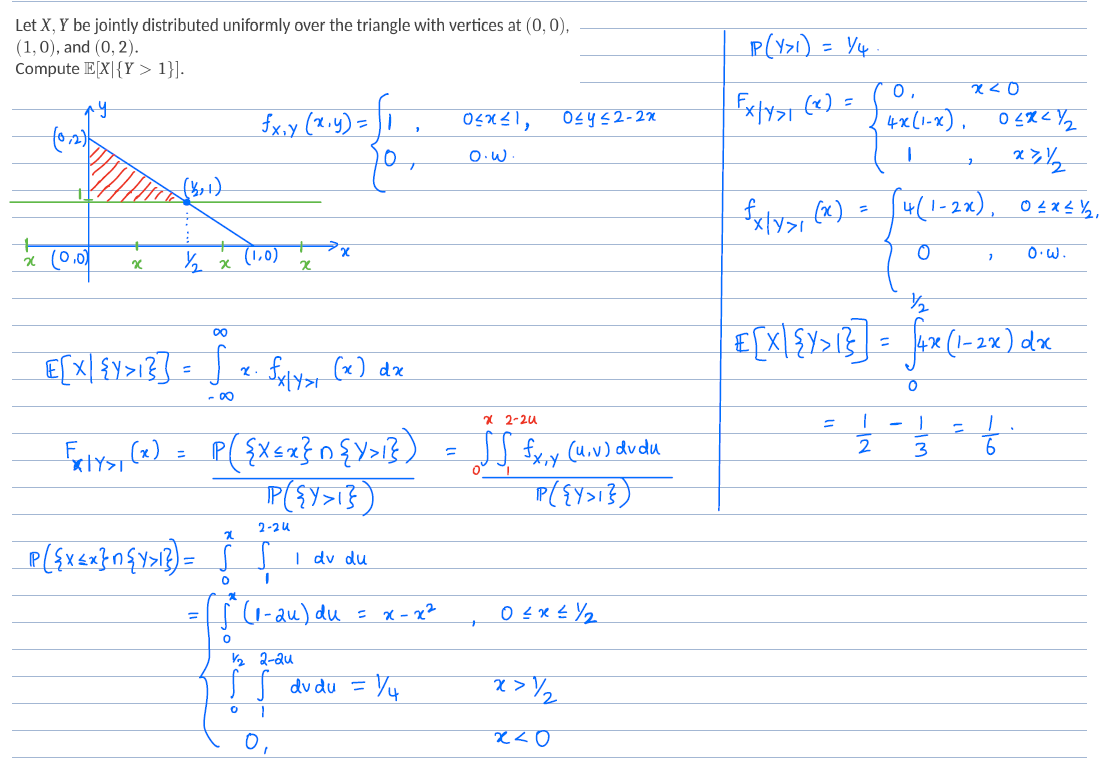 Let X, Y be jointly distributed uniformly over the triangle with vertices at (0, 0),
(1, 0), and (0, 2).
Compute 𝔼[X|{Y > 1}].
y
(0,2)
(½,1)
1
x (0,0) x ½ x (1,0) x x
f_{X,Y}(x,y) = { 1 , 0≤x≤1, 0≤y≤2-2x
0 , o.w.
E[X|{Y>1}] = ∫_{-∞}^{∞} x. f_{X|Y>1}(x) dx
F_{X|Y>1}(x) = P({X≤x}∩{Y>1}) / P({Y>1}) = ∫_0^x ∫_1^{2-2u} f_{X,Y}(u,v) dv du / P({Y>1})
P({X≤x}∩{Y>1}) = ∫_0^x ∫_1^{2-2u} 1 dv du
= { ∫_0^x (1-2u) du = x - x² , 0≤x≤½
∫_0^{½} ∫_1^{2-2u} dv du = ¼ x > ½
0, x<0
P(Y>1) = ¼.
F_{X|Y>1}(x) = { 0, x<0
4x(1-x), 0≤x<½
1 , x≥½
f_{X|Y>1}(x) = { 4(1-2x), 0≤x≤½,
0 , o.w.
E[X|{Y>1}] = ∫_0^{½} 4x(1-2x) dx
= 1/2 - 1/3 = 1/6.